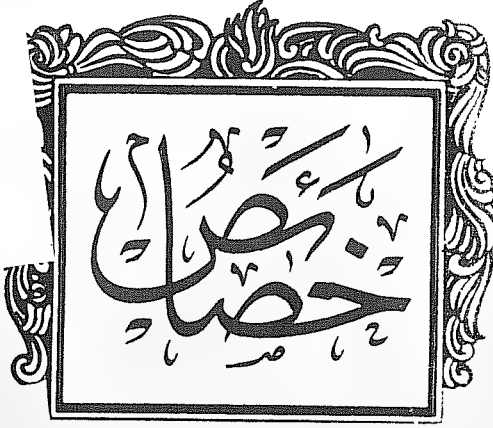 خصائص